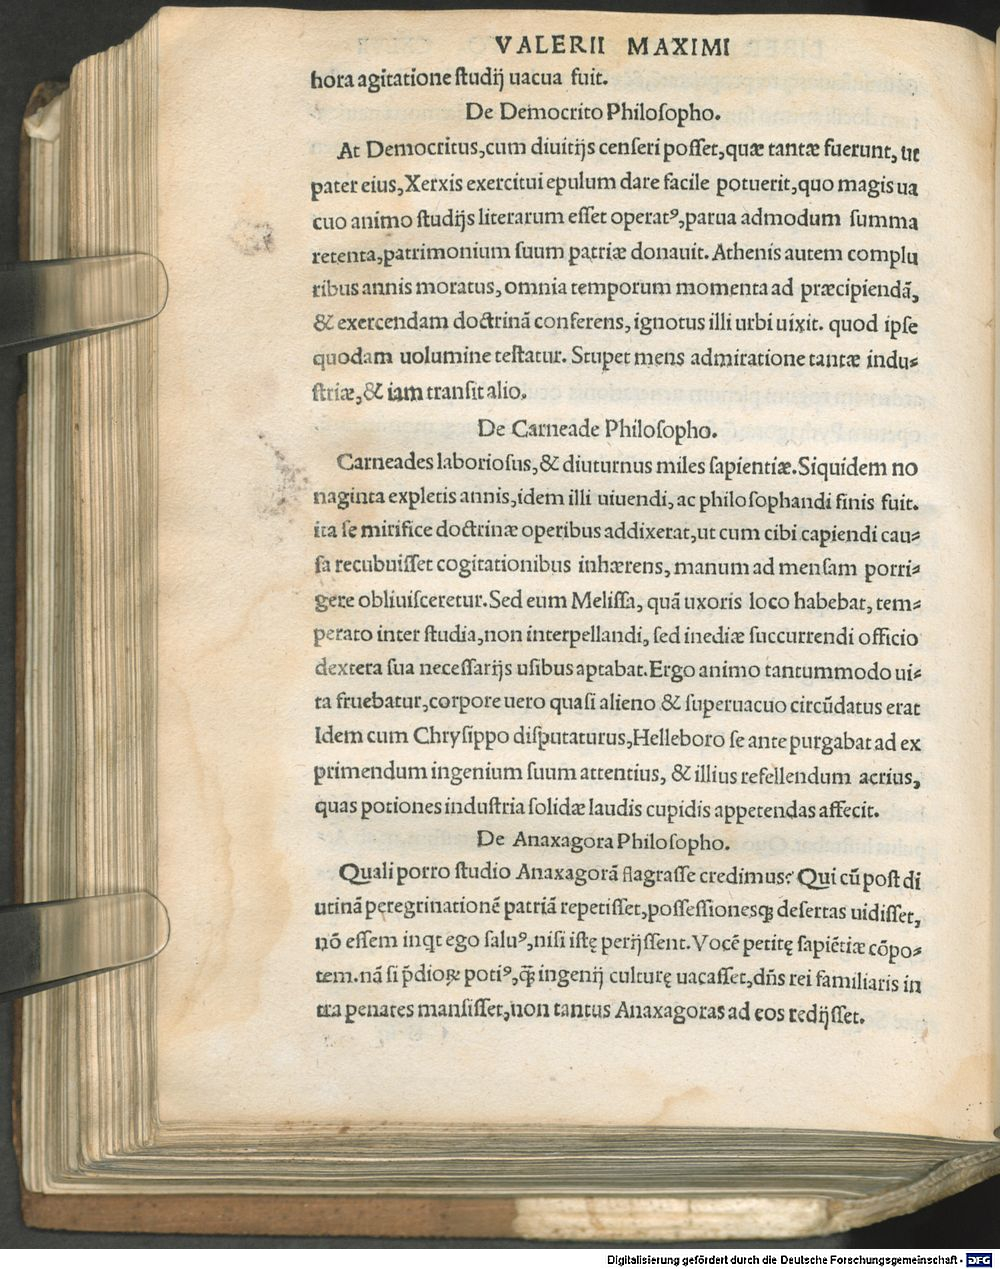 VALERII MAXIMI
hora agitatione ſtudij uacua fuit.
De Democrito Philoſopho.
At Democritus,cum diuitijs cenſeri poſſet,quæ tantæ fuerunt, ut
pater eius,Xerxis exercitui epulum dare facile potuerit,quo magis ua
cuo animo ſtudijs literarum eſſet operatꝰ,parua admodum ſumma
retenta,patrimonium ſuum patriæ donauit. Athenis autem complu
ribus annis moratus, omnia temporum momenta ad præcipiendã,
& exercendam doctrinã conferens, ignotus illi urbi uixit. quod ipſe
quodam uolumine teſtatur. Stupet mens admiratione tantæ indu⸗
ſtriæ,& iam tranſit alio.
De Carneade Philoſopho.
Carneades laborioſus,& diuturnus miles ſapientiæ.Siquidem no
naginta expletis annis,idem illi uiuendi, ac philoſophandi finis fuit.
ita ſe mirifice doctrinæ operibus addixerat,ut cum cibi capiendi cau⸗
ſa recubuiſſet cogitationibus inhærens, manum ad menſam porri⸗
gere obliuiſceretur.Sed eum Meliſſa, quã uxoris loco habebat, tem⸗
perato inter ſtudia,non interpellandi, ſed inediæ ſuccurrendi officio
dextera ſua neceſſarijs uſibus aptabat.Ergo animo tantummodo ui⸗
ta fruebatur,corpore uero quaſi alieno & ſuperuacuo circũdatus erat
Idem cum Chryſippo diſputaturus,Helleboro ſe ante purgabat ad ex
primendum ingenium ſuum attentius, & illius refellendum acrius,
quas potiones induſtria ſolidæ laudis cupidis appetendas affecit.
De Anaxagora Philoſopho.
Quali porro ſtudio Anaxagorã flagraſſe credimus? Qui cũ poſt di
utinã peregrinationẽ patriã repetiſſet,poſſeſſionesqꝫ deſertas uidiſſet,
nõ eſſem inqt ego ſaluꝰ,niſi iſtę perijſſent.Vocẽ petitę ſapiẽtiæ cõpo⸗
tem.nã ſi p̃dioꝝ potiꝰ,q̃ꝫ ingenij culturę uacaſſet,dñs rei familiaris in
tra penates manſiſſet,non tantus Anaxagoras ad eos redijſſet.
Digitalisierung gefördert durch die Deutsche Forschungsgemeinschaft - DFG